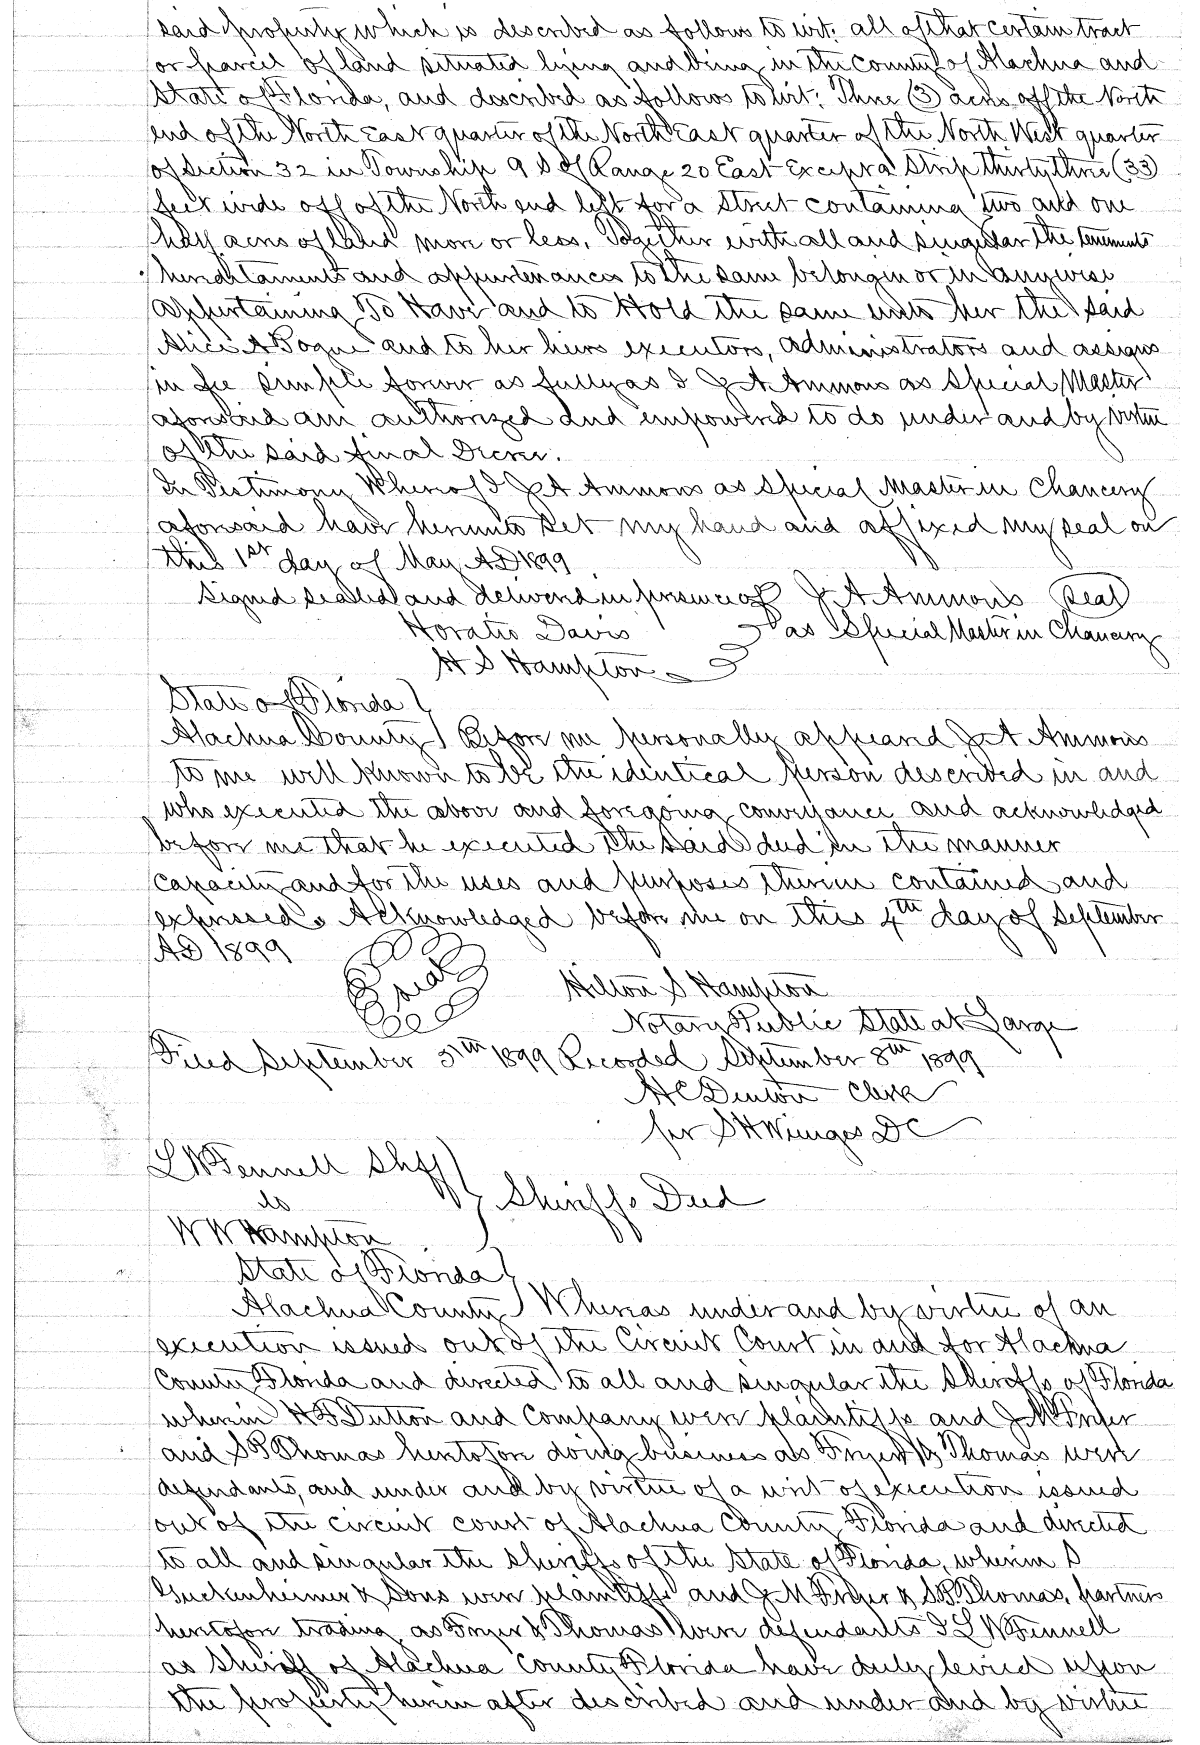 said property which is described as follows to wit: all of that certain tract
or parcel of land situated lying and being in the county of Alachua and
State of Florida, and described as follows to wit: Three (3) acres off the North
end of the North East quarter of the North East quarter of the North West quarter
of Section 32 in Township 9 S of Range 20 East Except a Strip thirty three (33)
feet wide off of the North end left for a Street containing two and one
half acres of land more or less, Together with all and singular the tenements
hereditaments and appurtenances to the same belongin or in anywise
appertaining To Have and to Hold the same unto her the said
Alice A Pogue and to her heirs executors, administrators and assigns
in fee simple forever as fully as I J A Ammons as Special Master
aforesaid am authorized and empowered to do under and by virtue
of the said final Decree.
In Testimony Whereof I J A Ammons as Special Master in Chancery
aforesaid have hereunto set my hand and affixed my seal on
this 1st day of May AD 1899
Signed sealed and delivered in presence of J A Ammons Seal
Horatio Davis as Special Master in Chancery
H S Hampton
State of Florida }
Alachua County } Before me personally appeared J A Ammons
to me well known to be the identical person described in and
who executed the above and foregoing conveyance and acknowledged
before me that he executed the said deed in the manner
capacity and for the uses and purposes therein contained and
expressed. Acknowledged before me on this 4th day of September
AD 1899
Seal
Hilton S Hampton
Notary Public State at Large
Filed September 5th 1899 Recorded September 8th 1899
H C Denton Clerk
per S H Wienges D C
L W Fennell Shff }
to } Sheriffs Deed
W W Hampton
State of Florida }
Alachua County } Whereas under and by virtue of an
execution issued out of the Circuit Court in and for Alachua
County Florida and directed to all and singular the Sheriffs of Florida
wherein H F Dutton and Company were plaintiffs and J M Fryer
and S P Thomas heretofore doing business as Fryer & Thomas were
defendants, and under and by virtue of a writ of execution issued
out of the circuit court of Alachua County Florida and directed
to all and singular the Sheriffs of the State of Florida, wherein S
Guckenheimer & Sons were plaintiffs and J M Fryer & S P Thomas, partners
heretofore trading as Fryer & Thomas were defendants I L W Fennell
as Sheriff of Alachua County Florida have duly levied upon
the property herein after described and under and by virtue